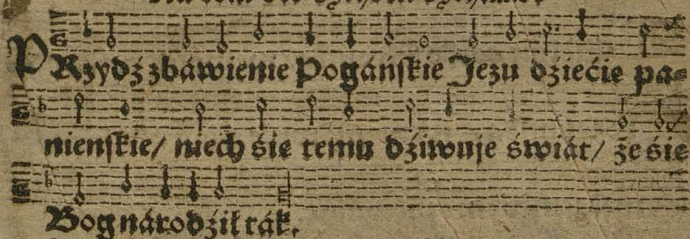 PRzydź zbáwienie Pogáńskie Jezu dźiećię pa-
nienskie/ niech śię temu dźiwuje świát/ że śię
Bog národźił ták.